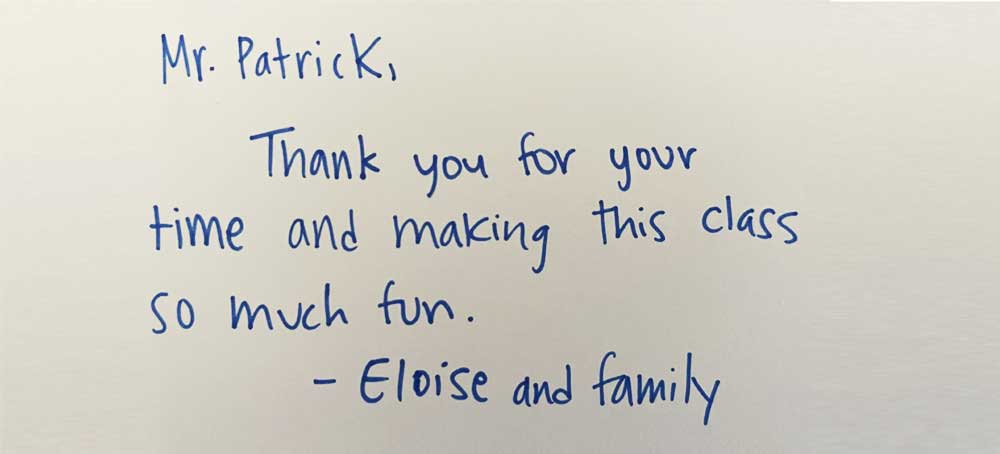 Mr. Patrick,
Thank you for your
time and making this class
so much fun.
- Eloise and family